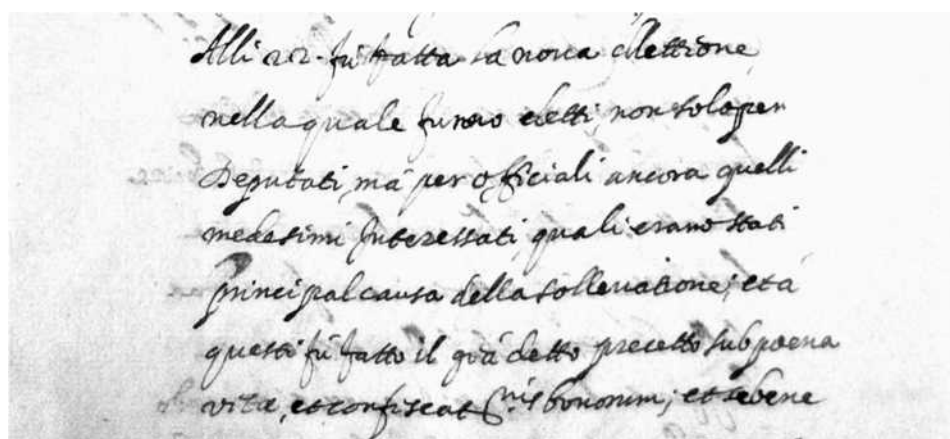 Alli 22. fù fatta la noua elettione,
nella quale furono eletti, non solo per
Deputati, mà per officiali ancora quelli
medesimi Interessati, quali erano stati
principal causa della solleuatione; et à
questi fù fatto il già detto precetto sub poena
vitæ, et confiscat.nis bonorum; et se bene